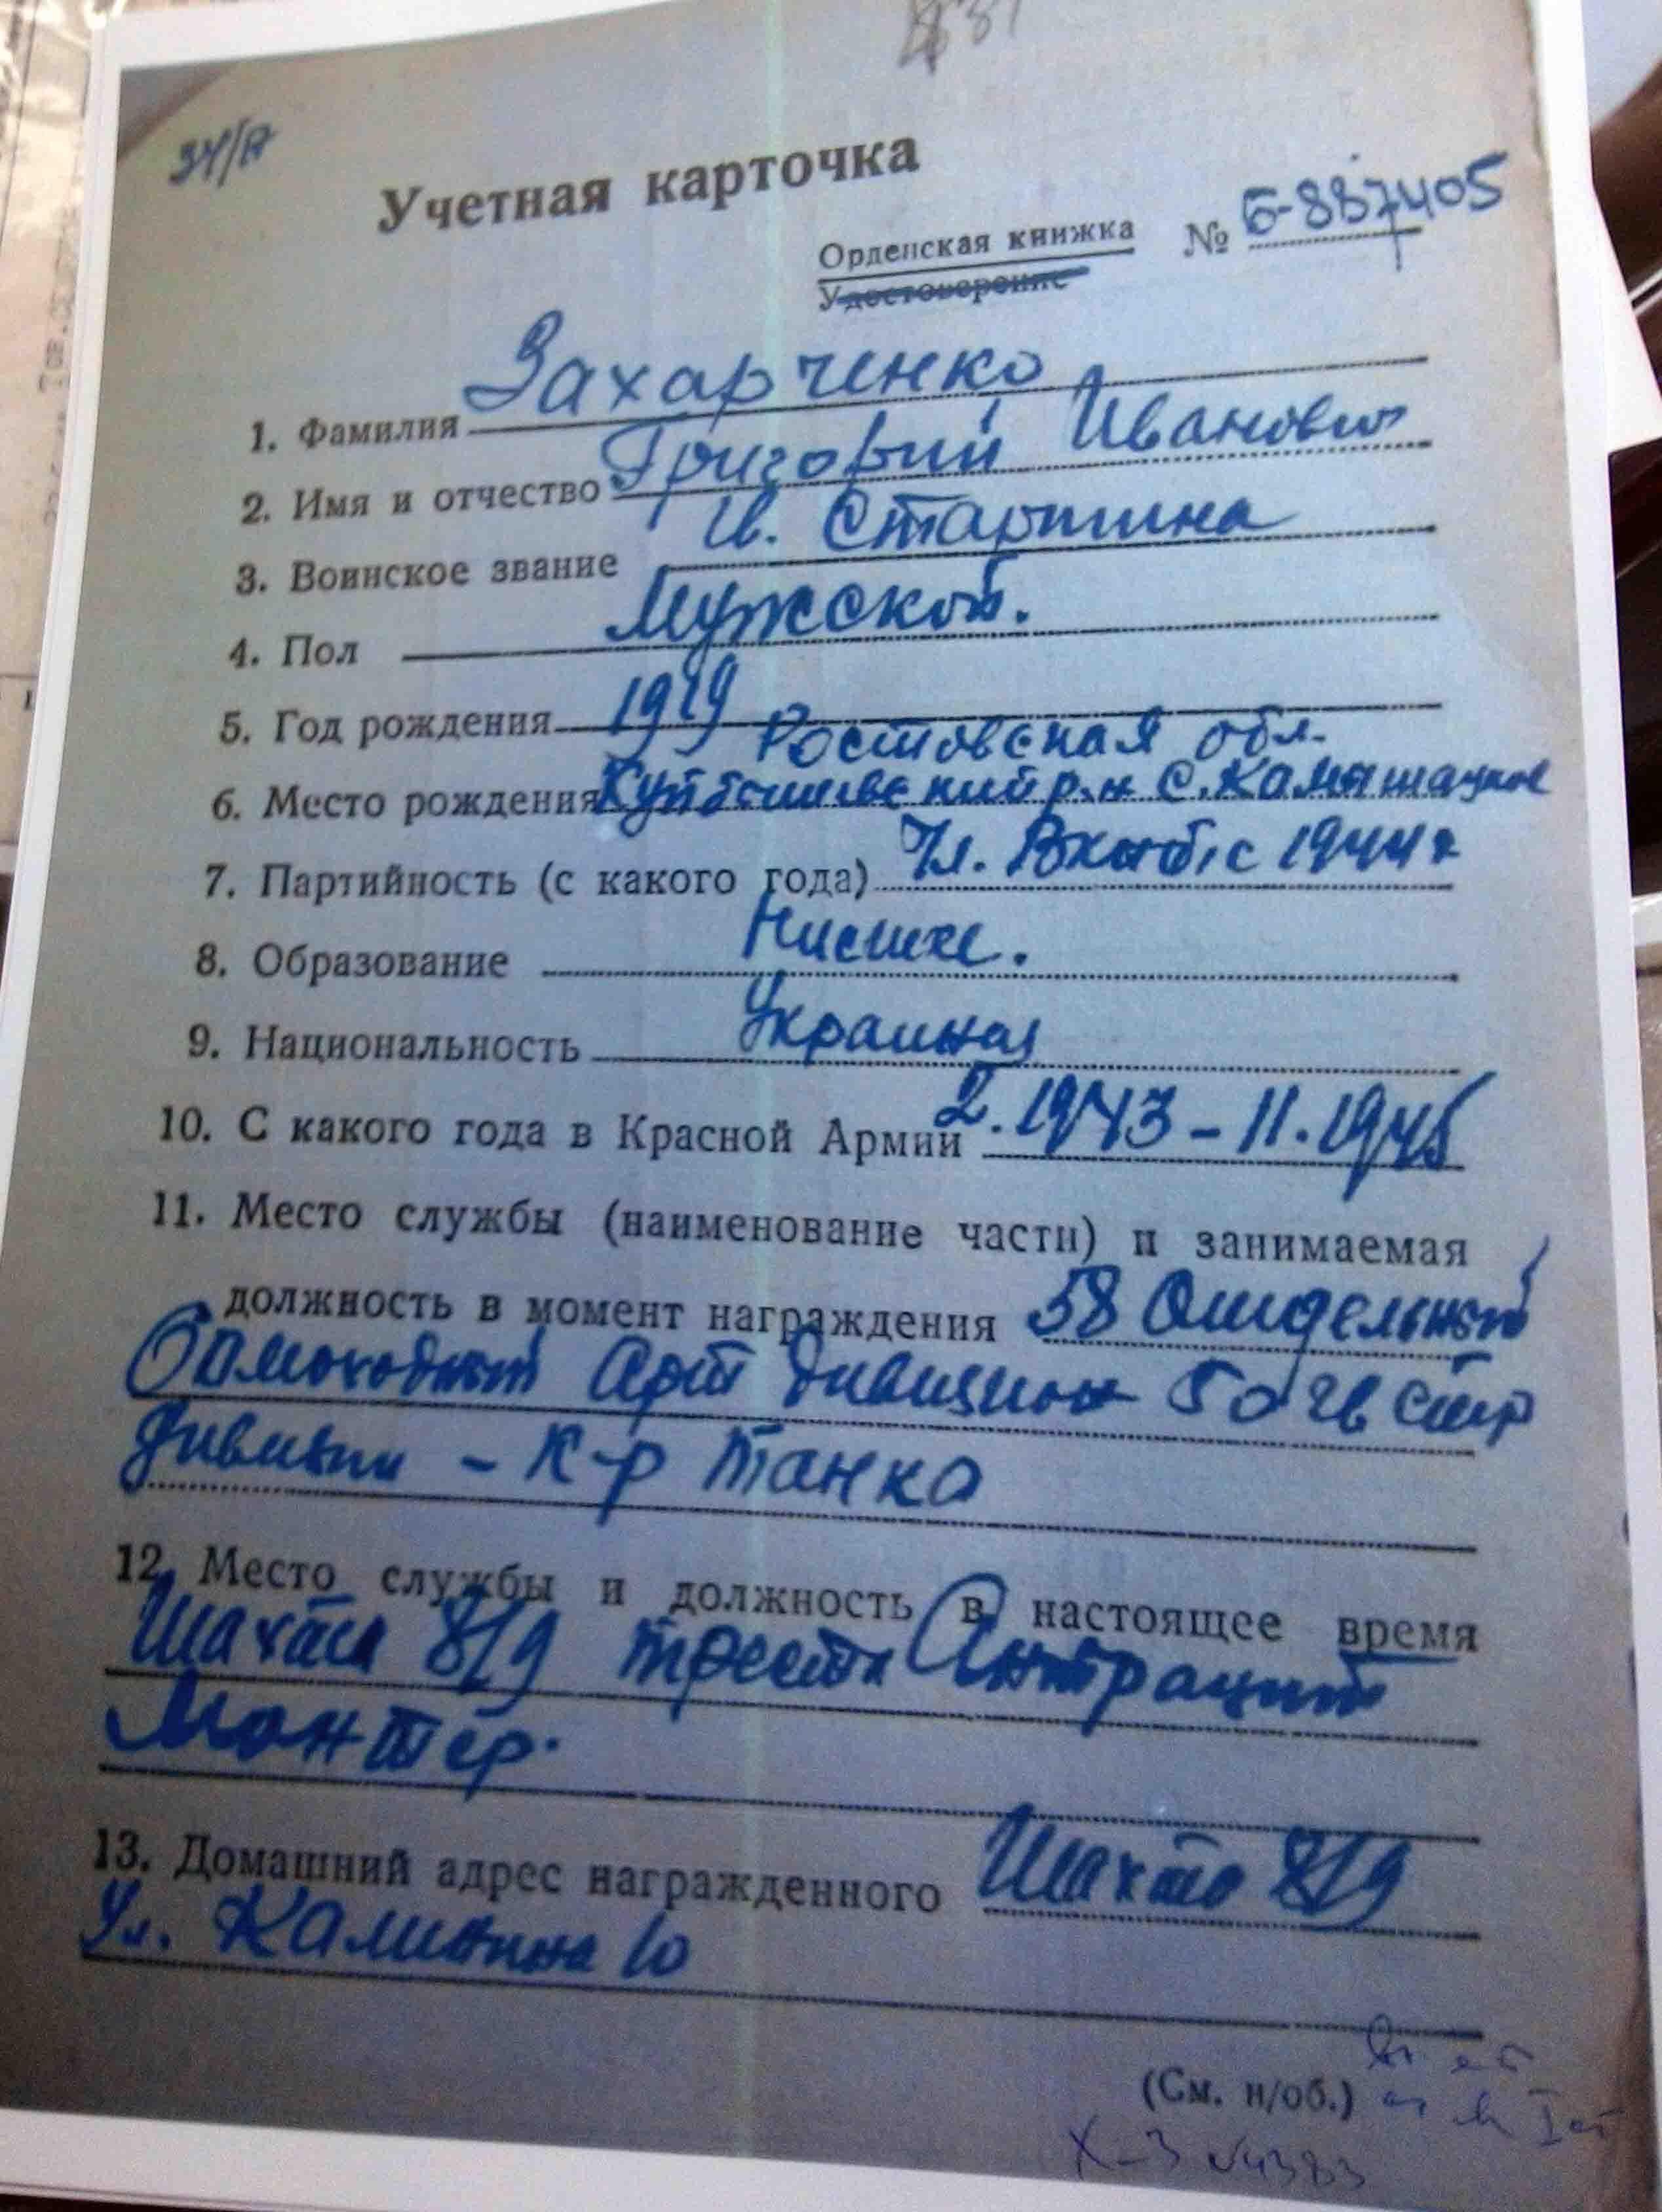 34/А
Учетная карточка
Орденская книжка № Б-887405
Удостоверение
1. Фамилия Захарченко
2. Имя и отчество Григорий Иванович
3. Воинское звание гв. Старшина
4. Пол Мужской.
5. Год рождения 1919
Ростовская обл.
6. Место рождения Куйбышевский р.н с.Камышацкое
7. Партийность (с какого года) Чл. ВКП(б) с 1944г
8. Образование Нисшее.
9. Национальность Украинец
10. С какого года в Красной Армии 2.1943-11.1945
11. Место службы (наименование части) и занимаемая
должность в момент награждения 58 Отдельный
Самоходный Арт дивизион 50 гв стр
дивизии - к-р танка
12. Место службы и должность в настоящее время
Шахта 8/9 треста Антрацит
Монтер.
13. Домашний адрес награжденного Шахта 8/9
Ул. Калинина 10
(См. н/об.)
Х-3 №4383